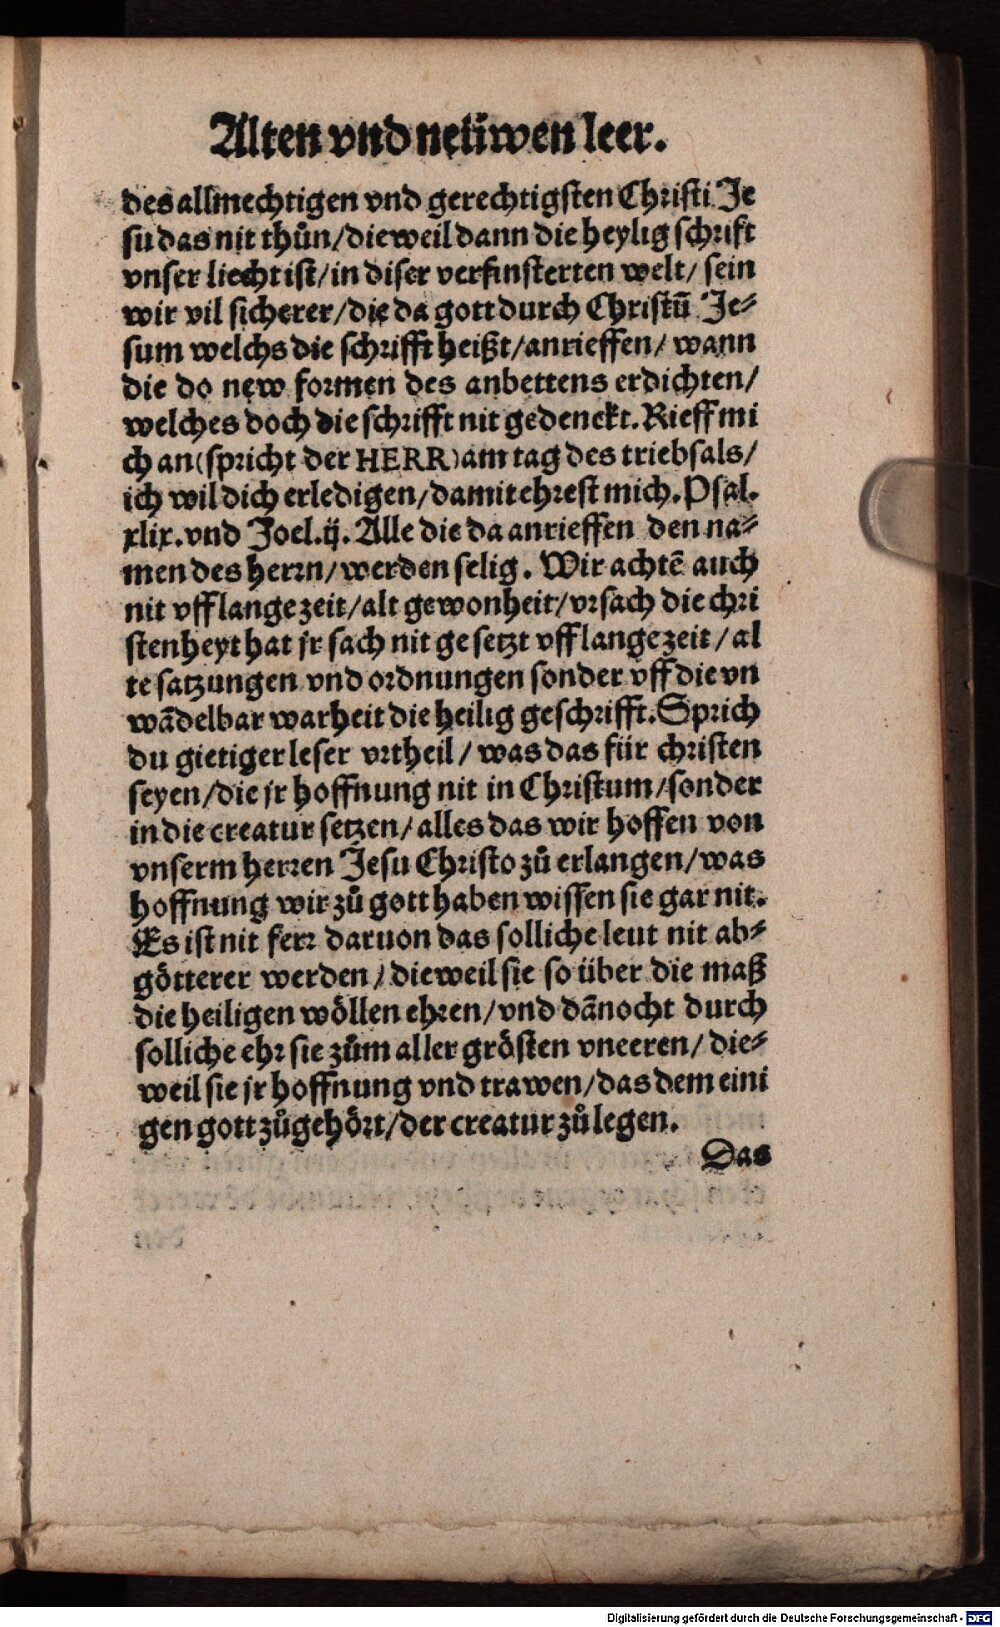 Alten vnd neüwen leer.
des allmechtigen vnd gerechtigsten Christi Je
su das nit thůn/dieweil dann die heylig schrift
vnser liecht ist/in diser verfinsterten welt/ sein
wir vil sicherer/die da gott durch Christū Je⸗
sum welchs die schrifft heißt/anrieffen/ wann
die do new formen des anbettens erdichten/
welches doch die schrifft nit gedenckt. Rieff mi
ch an(spricht der HERR)am tag des triebsals/
ich wil dich erledigen/damit ehrest mich. Psal.
xlix. vnd Joel.ij. Alle die da anrieffen den na⸗
men des herrn/werden selig. Wir achtē auch
nit vff lange zeit/alt gewonheit/vrsach die chri
stenheyt hat jr sach nit gesetzt vff lange zeit/al
te satzungen vnd ordnungen sonder vff die vn
wādelbar warheit die heilig geschrifft. Sprich
du gietiger leser vrtheil/ was das für christen
seyen/die jr hoffnung nit in Christum/sonder
in die creatur setzen/alles das wir hoffen von
vnserm herren Jesu Christo zů erlangen/was
hoffnung wir zů gott haben wissen sie gar nit.
Es ist nit ferr daruon das solliche leut nit ab⸗
götterer werden/dieweil sie so über die maß
die heiligen wöllen ehren/vnd dānocht durch
solliche ehr sie zům aller grösten vneeren/die⸗
weil sie jr hoffnung vnd trawen/das dem eini
gen gott zůgehört/der creatur zů legen.
Das
Digitalisierung gefördert durch die Deutsche Forschungsgemeinschaft - DFG